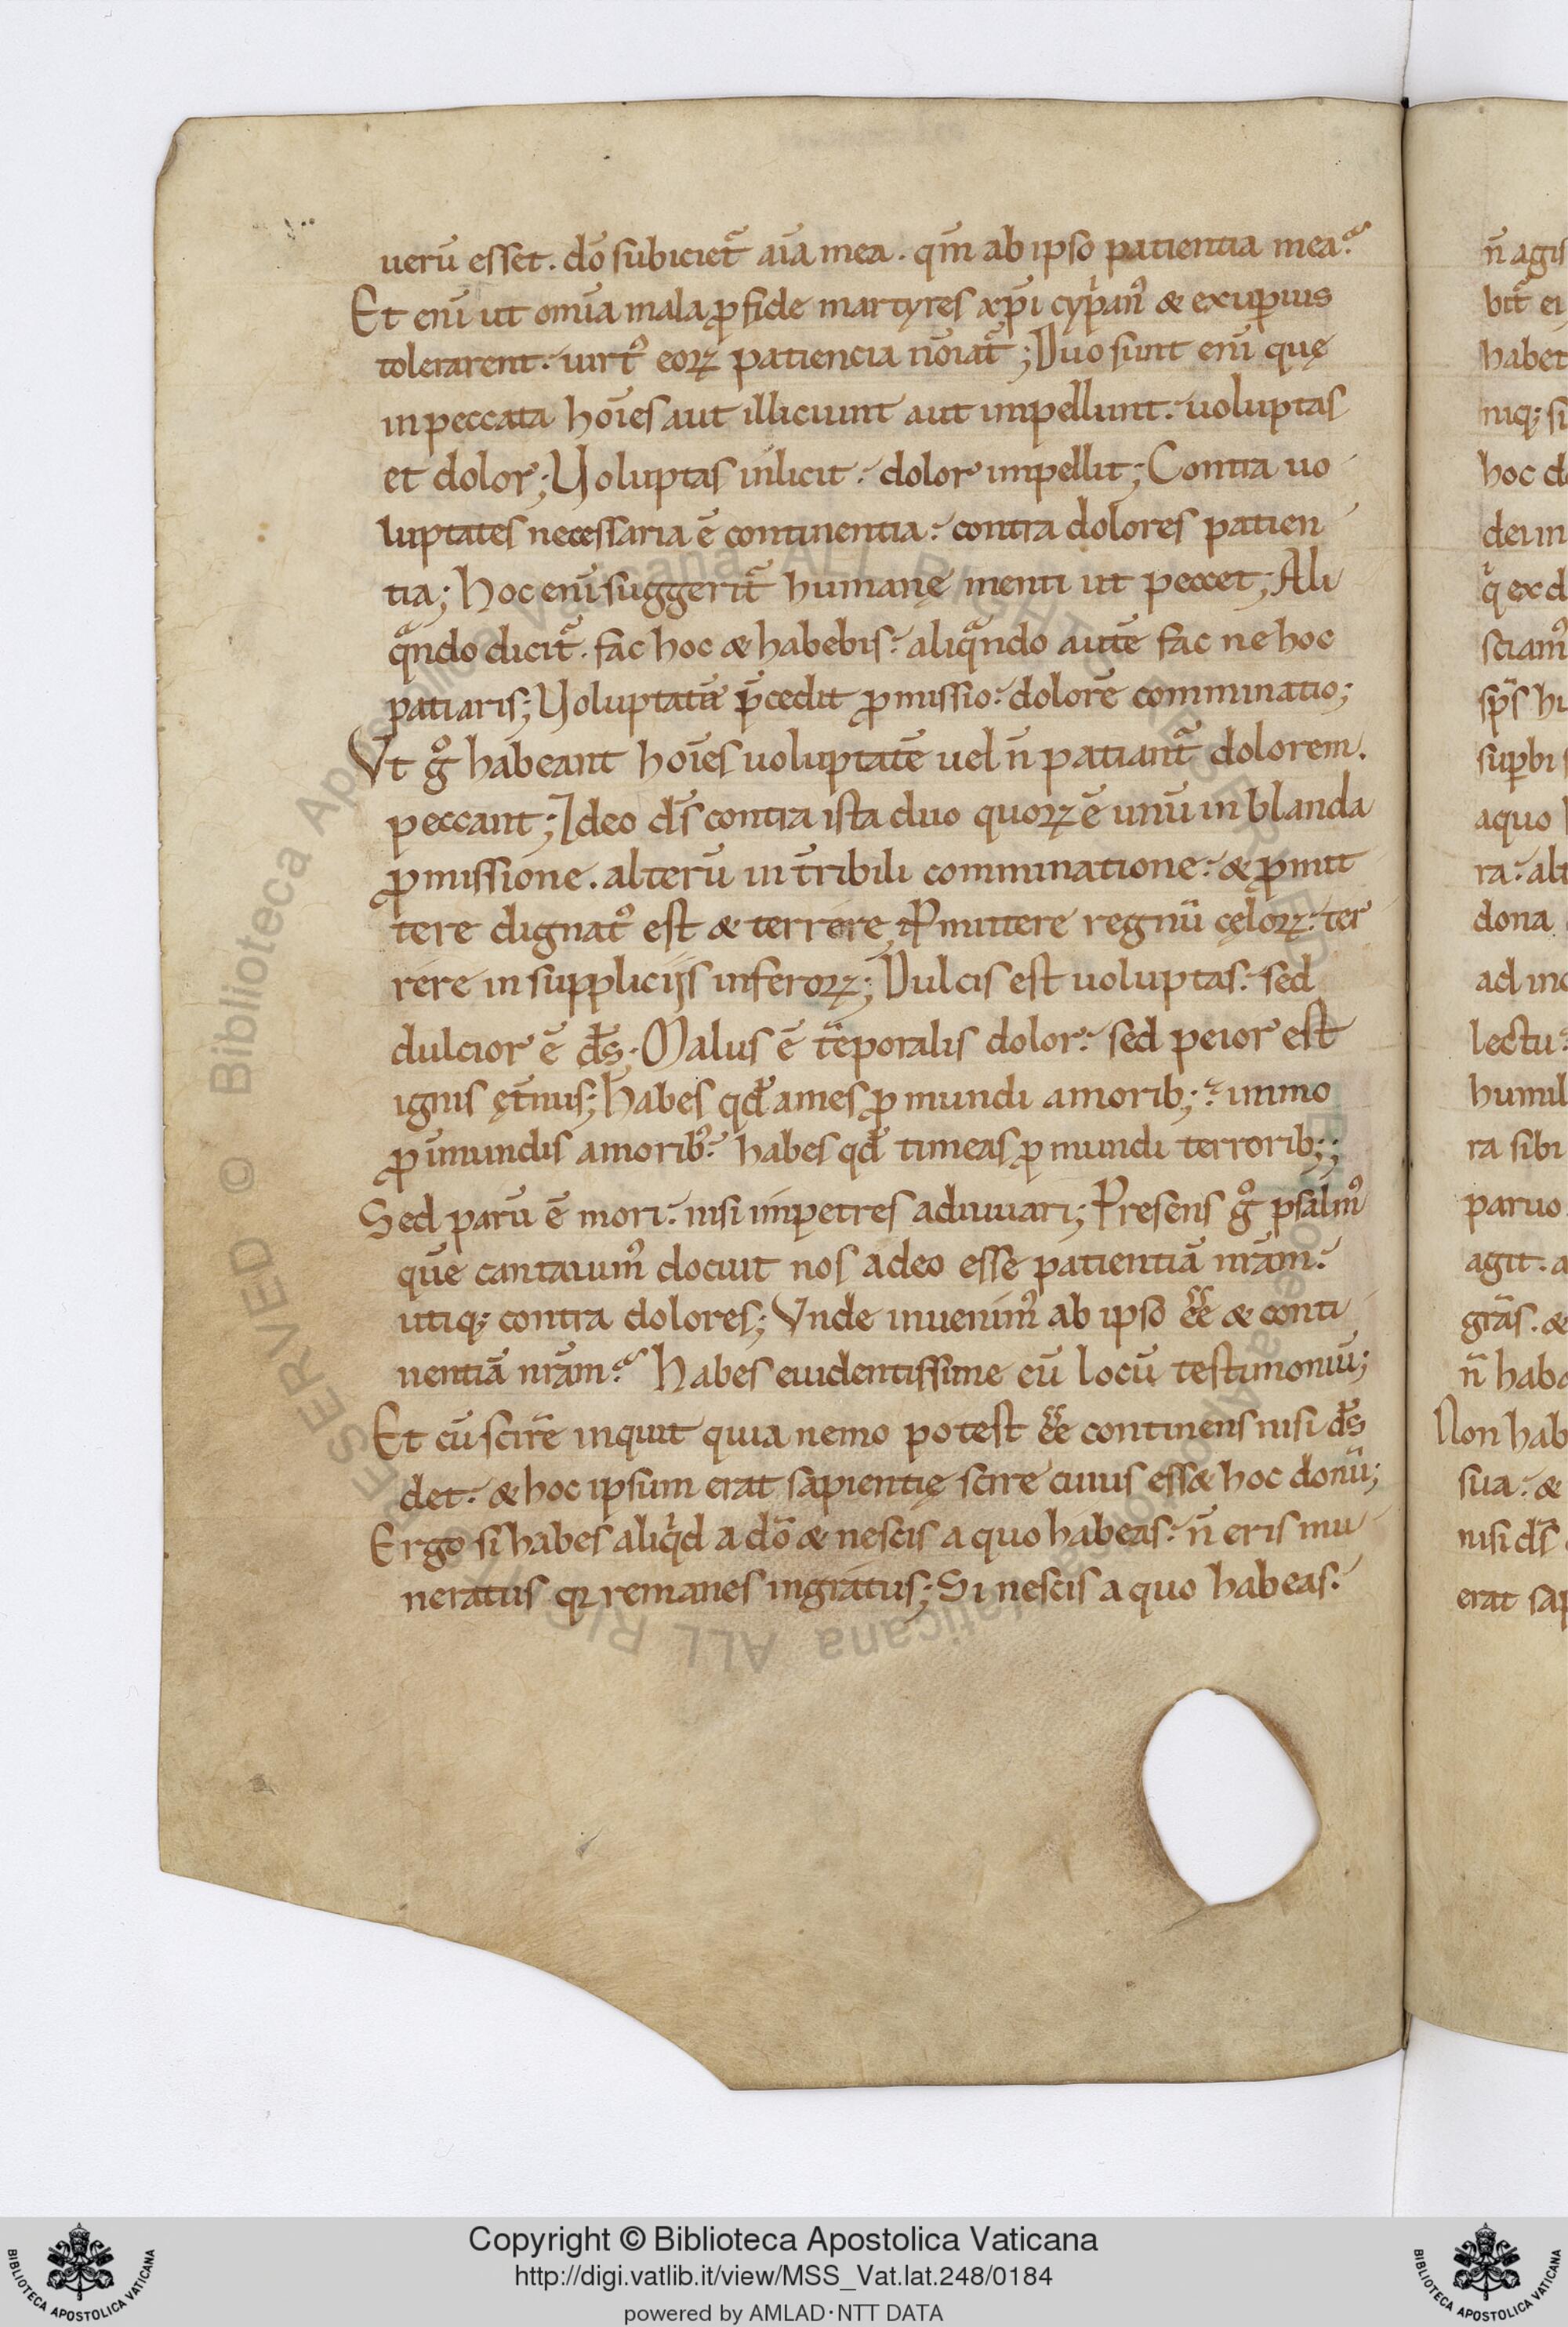 uerū esset. dō subiciet᷑ aīa mea. qm̄ ab ipso patientia mea.
Et enī ut om̄ia mala ꝓ fide martyres xp̄i cyp̄anꝰ & exuꝑius
tolerarent. uirtꝰ eoꝝ patiencia nōiat᷑; Duo sunt enī quę
in peccata hoīes aut illiciunt aut impellunt. uoluptas
et dolor; Uoluptas inlicit. dolor impellit; Contra uo
luptates necessaria ē continentia. contra dolores patien
tia; hoc enī suggerit᷑ humanę menti ut peccet; Ali
qͣndo dicit᷑. fac hoc & habebis. aliqͣndo autē fac ne hoc
patiaris; Uoluptatē p̄cedit ꝓmissio. dolorē comminatio;
Vt gͦ habeant hoīes uoluptatē uel n̄ patiant᷑ dolorem.
peccant; Ideo ds̄ contra ista duo quoꝝ ē unū in blanda
ꝓmissione. alterū in t̄ribili comminatione. & ꝓmit
tere dignatꝰ est & terrere, Ꝓmittere regnū cęloꝝ. ter
rere in suppliciis inferoꝝ; Dulcis est uoluptas. sed
dulcior ē ds̄. Malus ē tēporalis dolor. sed peior est
ignis ęt̄nus; habes qd̄ ames ꝓ mundi amorib; immo
ꝓ īmundis amoribꝰ. habes qd̄ timeas ꝓ mundi terrorib;;
Sed parū ē mori. nisi impetres adiuuari; Presens gͦ psalmꝰ
quē cantauimꝰ docuit nos a deo esse patientiā nr̄am.
utiq; contra dolores; Vnde inuenimꝰ ab ipso ēē & conti
nentiā nr̄am. habes euidentissime cū locū testimoniū;
Et cū scirē inquit quia nemo potest ēē continens nisi ds̄
det. & hoc ipsum erat sapientię scire cuius ess& hoc donū;
Ergo si habes aliqͥd a dō & nescis a quo habeas. n̄ eris mu
neratus qꝛ remanes ingratus; Si nescis a quo habeas.
n̄ agis
bit᷑ ei
habet
niq; si
hoc d
dei in
qͥ ex d
sciamꝰ
sp̄s hu
suꝑbi
a quo
ra. alt
dona
ad inc
lectu
humil
ra sibi
paruo
agit. a
grās. &
n̄ habe
Non hab
sua. &
nisi ds̄
erat sap
Copyright © Biblioteca Apostolica Vaticana
http://digi.vatlib.it/view/MSS_Vat.lat.248/0184
powered by AMLAD·NTT DATA
BIBLIOTECA APOSTOLICA VATICANA
BIBLIOTECA APOSTOLICA VATICANA